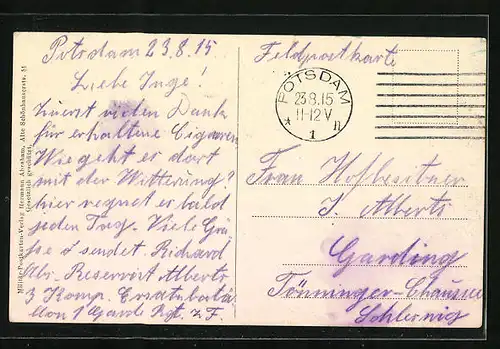 Potsdam 23.8.15
Liebe Inge!
Zuerst vielen Dank
für erhaltene Cigarren
Wie geht es dort
mit der Witterung?
hier regnet er bald
jeden Tag. Viele Grü-
sse sendet Richard
Abr. Reservist Alberts
3 Komp. Ersatzbatai-
llon 1 Garde Rgt. z. F.
Militär-Postkarten-Verlag Hermann Abraham, Alte Schönhauserstr. 51
Gesetzlich geschützt.
Feldpostkarte
POTSDAM
23.8.15
11-12 V
* 1 n
Frau Hofbesitzer
J. Alberts
Garding
Tönninger-Chaussee
Schleswig